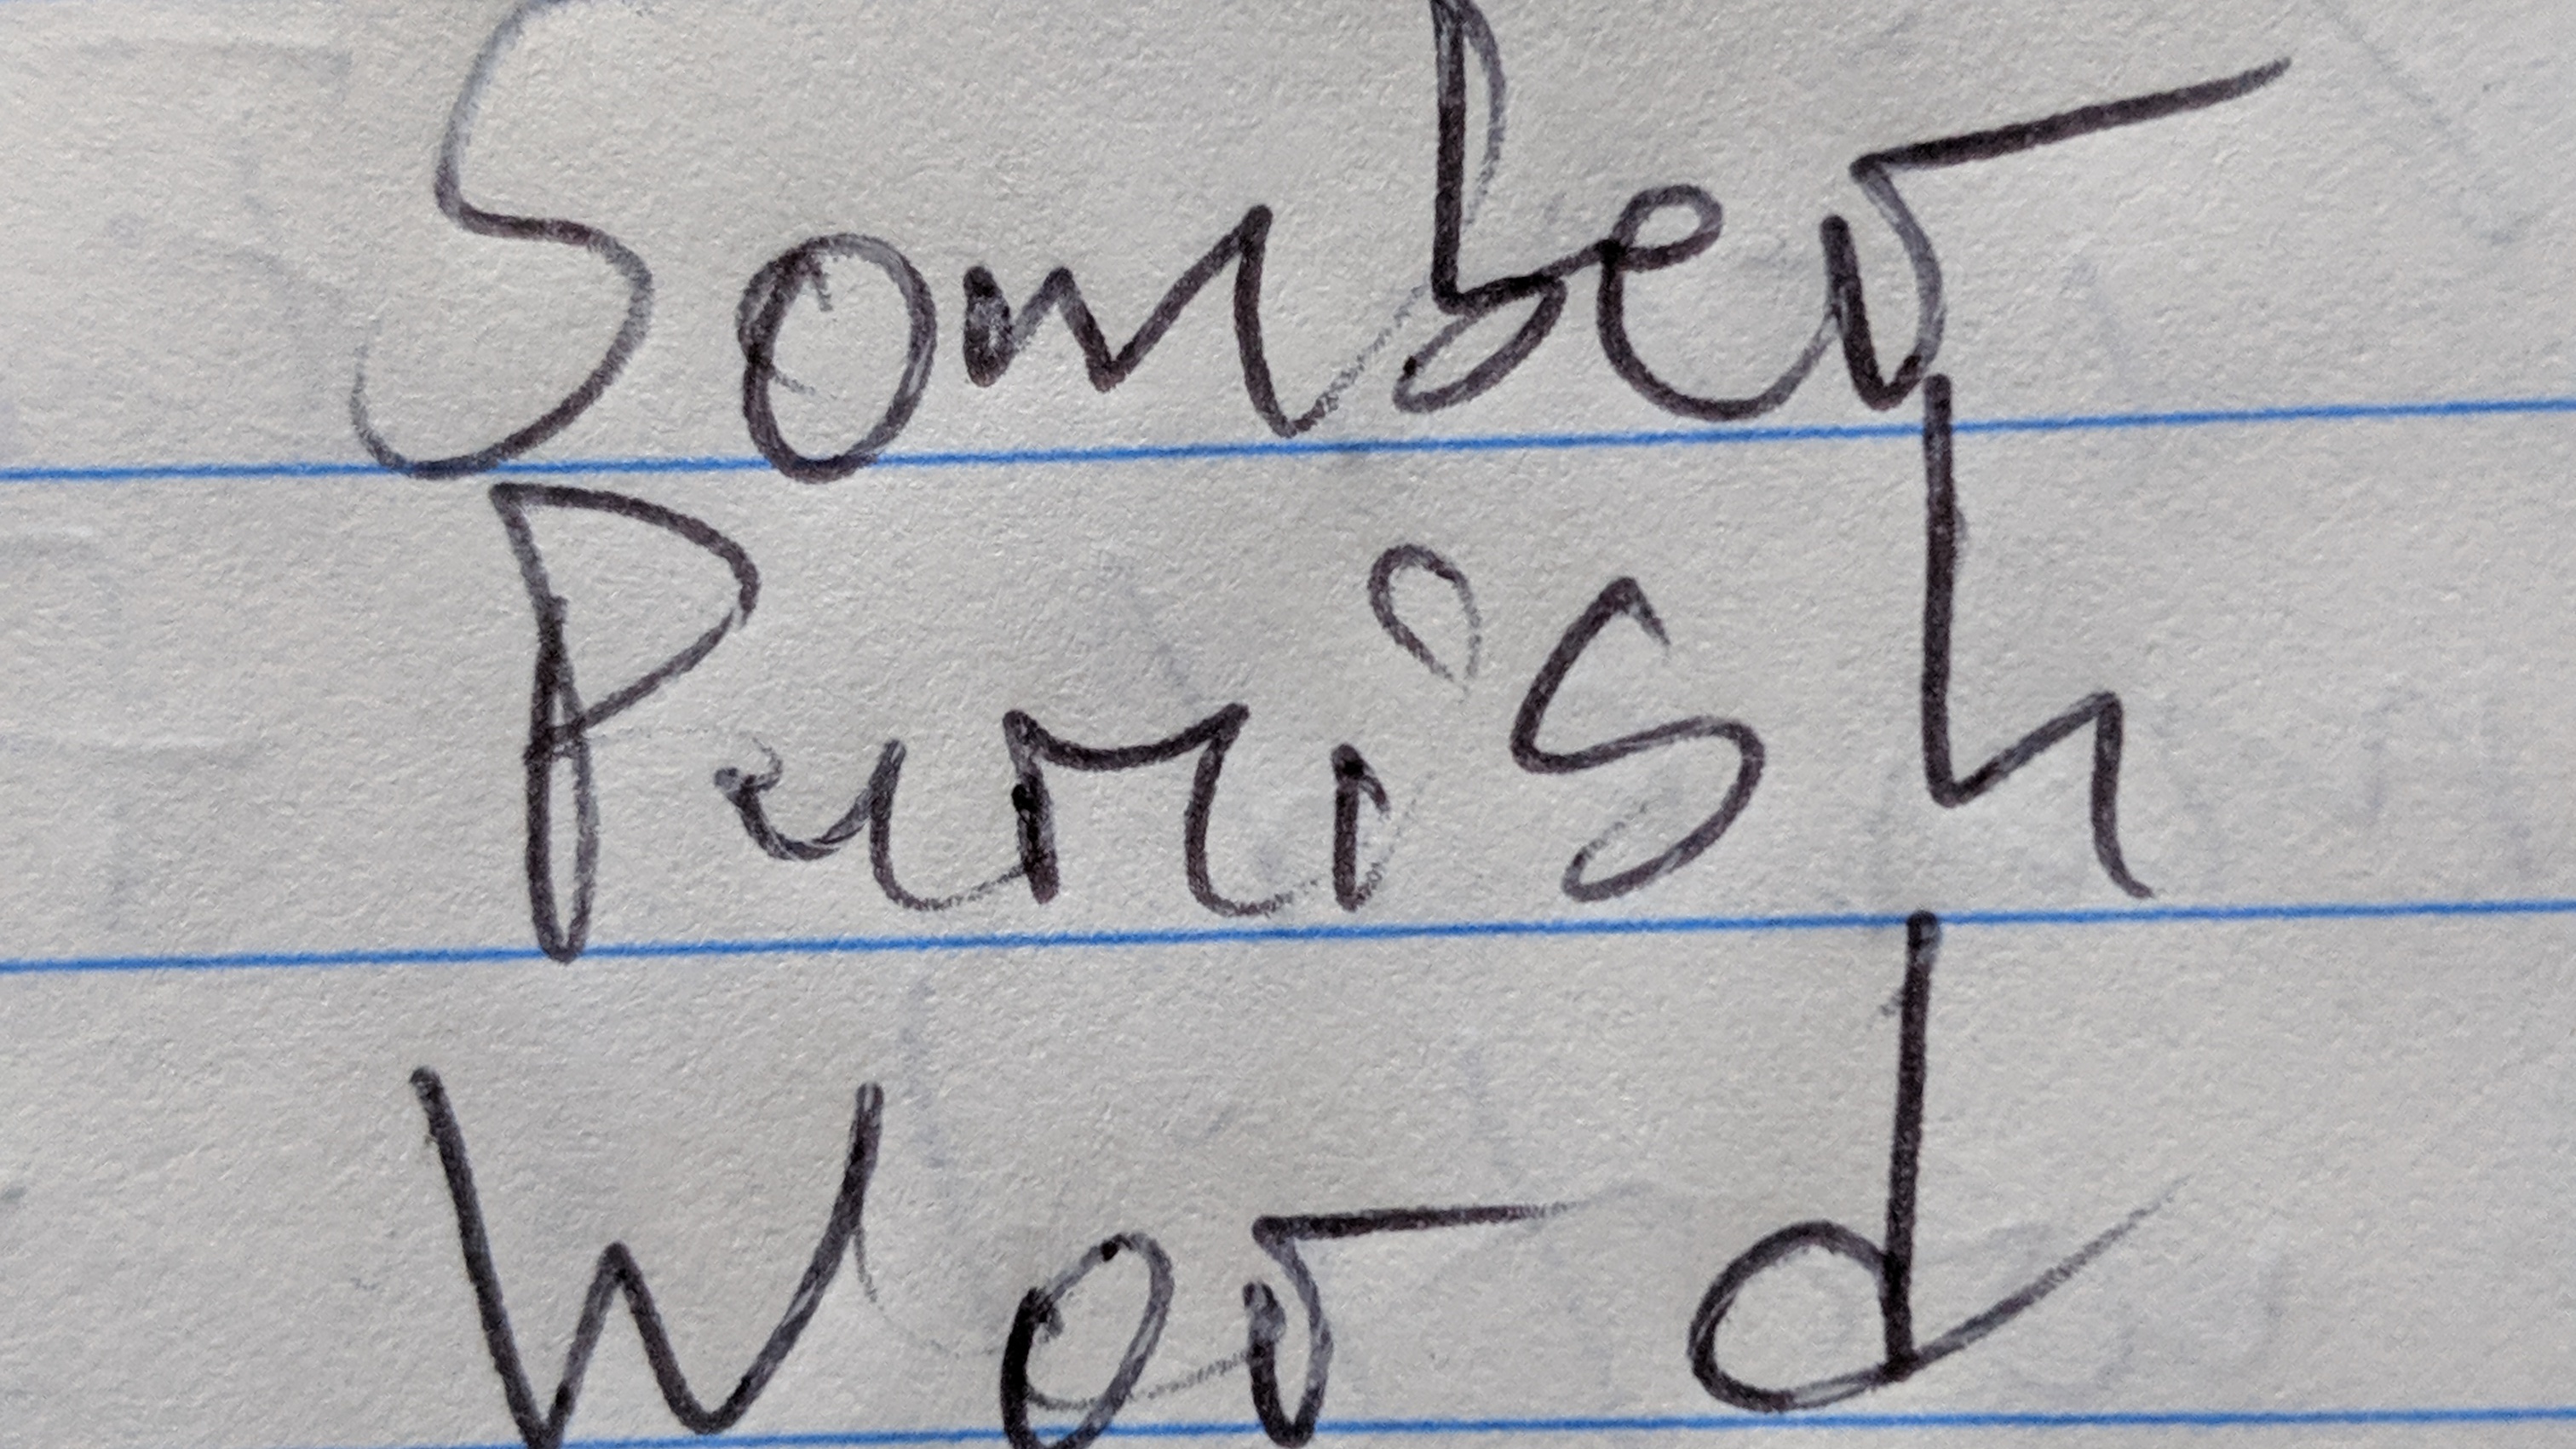 Somber
Punish
Word